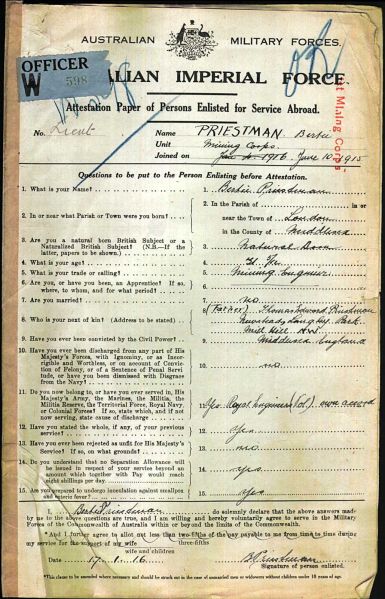 AUSTRALIAN MILITARY FORCES.
OFFICER
W 598
AUSTRALIAN IMPERIAL FORCE
Attestation Paper of Persons Enlisted for Service Abroad.
No. Lieut Name PRIESTMAN Bertie
Unit Mining Corps.
Joined on Jan 4. 1916 June 10 1915
1st Mining Corps
Questions to be put to the Person Enlisting before Attestation.
1. What is your Name? 1. Bertie Priestman
2. In or near what Parish or Town were you born? 2. In the Parish of in or
near the Town of London
in the County of Middlesex
3. Are you a natural born British Subject or a
Naturalized British Subject? (N.B.—If the
latter, papers to be shown.) 3. Natural Born
4. What is your age? 4.
5. What is your trade or calling? 5. Mining Engineer
6. Are you, or have you been, an Apprentice? If so,
where, to whom, and for what period? 6.
7. Are you married? 7. no
8. Who is your next of kin? (Address to be stated) 8. (Father) Thomas Edward Priestman
Langley Park
Mill Hill
9. Have you ever been convicted by the Civil Power? 9. Middlesex England
10. Have you ever been discharged from any part of His
Majesty's Forces, with Ignominy, or as Incor-
rigible and Worthless, or on account of Convic-
tion of Felony, or of a Sentence of Penal Servi-
tude, or have you been dismissed with Disgrace
from the Navy? 10. no
11. Do you now belong to, or have you ever served in, His
Majesty's Army, the Marines, the Militia, the
Militia Reserve, the Territorial Force, Royal Navy,
or Colonial Forces? If so, state which, and if not
now serving, state cause of discharge 11. Yes. Royal Engineers (Vol)
12. Have you stated the whole, if any, of your previous
service? 12. Yes
13. Have you ever been rejected as unfit for His Majesty's
Service? If so, on what grounds? 13. no
14. Do you understand that no Separation Allowance will
be issued in respect of your service beyond an
amount which together with Pay would reach
eight shillings per day 14. Yes
15. Are you prepared to undergo inoculation against smallpox
and enteric fever? 15. Yes
I, Bertie Priestman do solemnly declare that the above answers made
by me to the above questions are true, and I am willing and hereby voluntarily agree to serve in the Military
Forces of the Commonwealth of Australia within or beyond the limits of the Commonwealth.
*And I further agree to allot not less than two-fifths of the pay payable to me from time to time during
three-fifths
my service for the support of my wife
wife and children
Date 17. 1. 16 B Priestman
Signature of person enlisted.
*This clause to be amended where necessary and should be struck out in the case of unmarried men or widowers without children under 18 years of age.